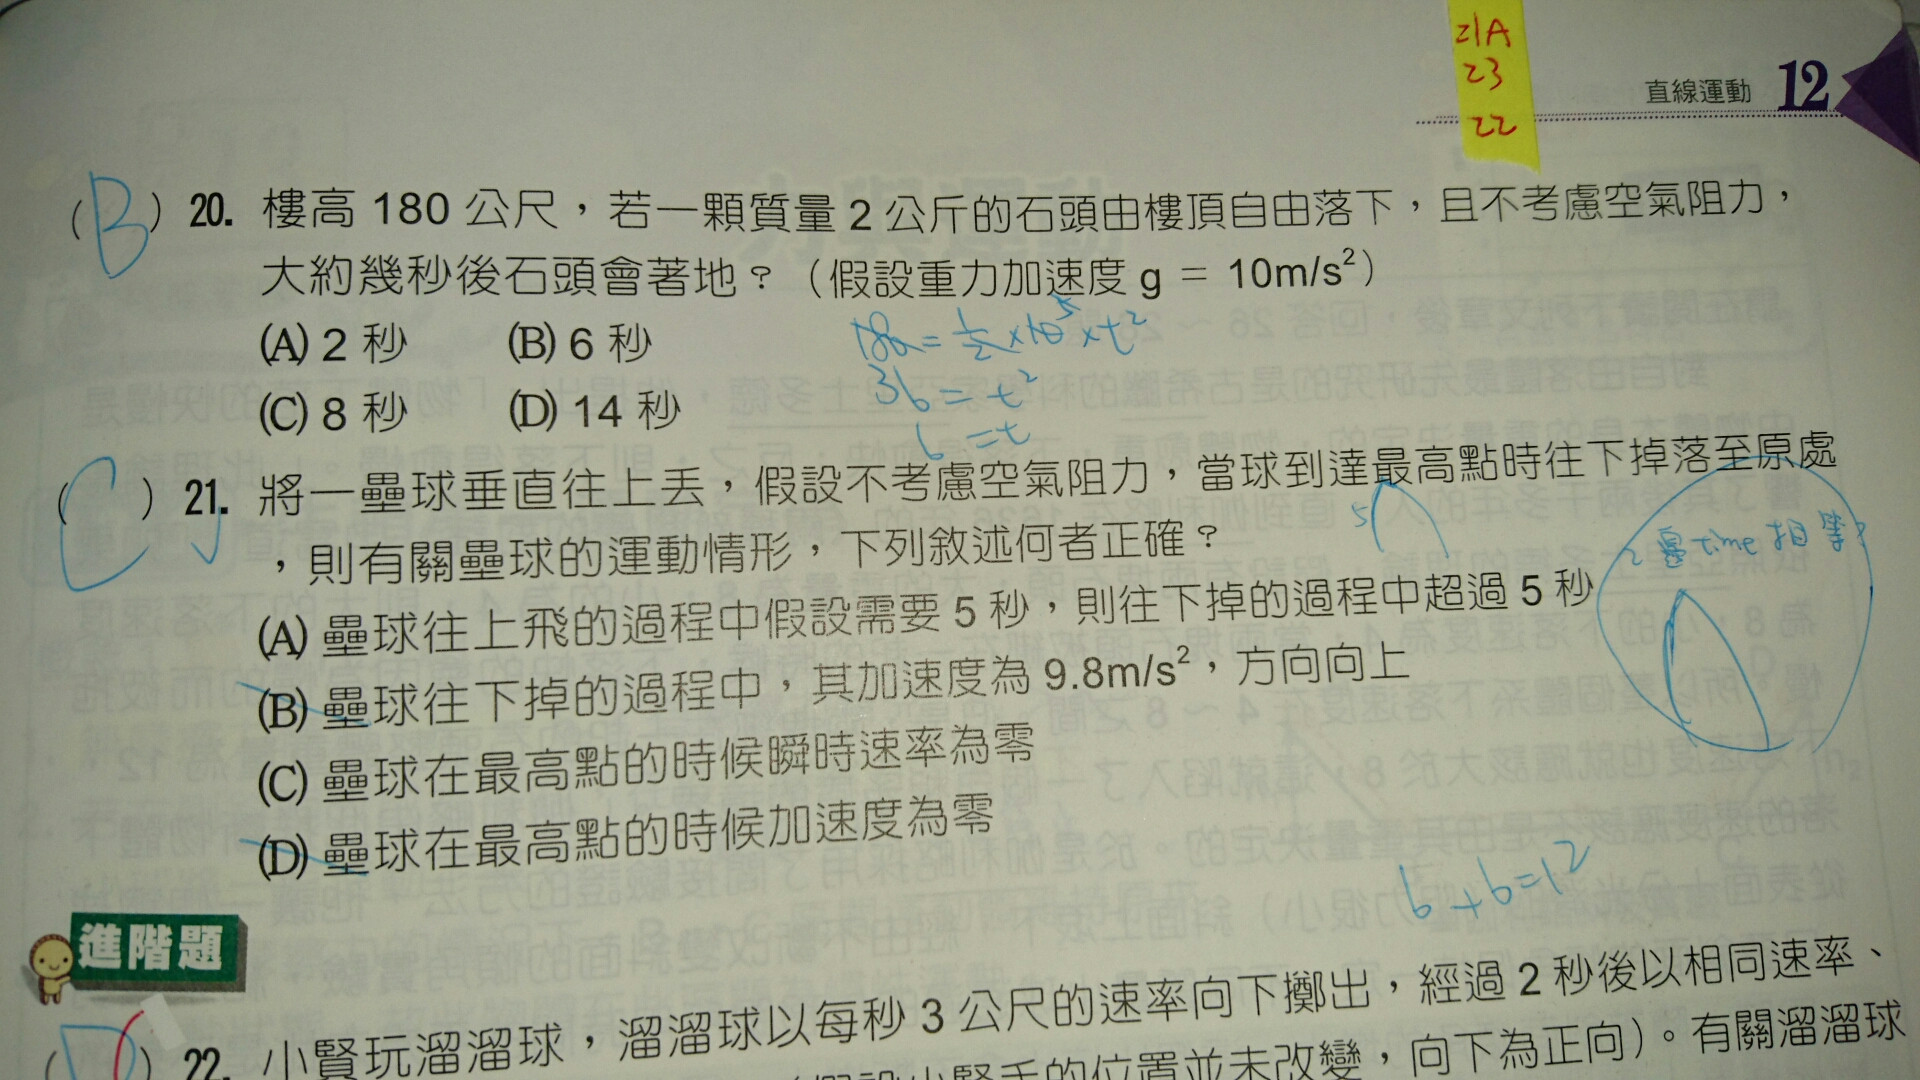 21A
23
22
直線運動 12
(B) 20. 樓高 180 公尺，若一顆質量 2 公斤的石頭由樓頂自由落下，且不考慮空氣阻力，
大約幾秒後石頭會著地？（假設重力加速度 g = 10m/s²）
(A) 2 秒 (B) 6 秒
(C) 8 秒 (D) 14 秒
180 = 1/2 × 10 5 × t²
36 = t²
6 = t
(C) 21. 將一壘球垂直往上丟，假設不考慮空氣阻力，當球到達最高點時往下掉落至原處
，則有關壘球的運動情形，下列敘述何者正確？
5
2邊time相等?
(A) 壘球往上飛的過程中假設需要 5 秒，則往下掉的過程中超過 5 秒
(B) 壘球往下掉的過程中，其加速度為 9.8m/s²，方向向上
(C) 壘球在最高點的時候瞬時速率為零
(D) 壘球在最高點的時候加速度為零
6+6=12
進階題
(D) 22. 小賢玩溜溜球，溜溜球以每秒 3 公尺的速率向下擲出，經過 2 秒後以相同速率、
（假設小賢手的位置並未改變，向下為正向）。有關溜溜球